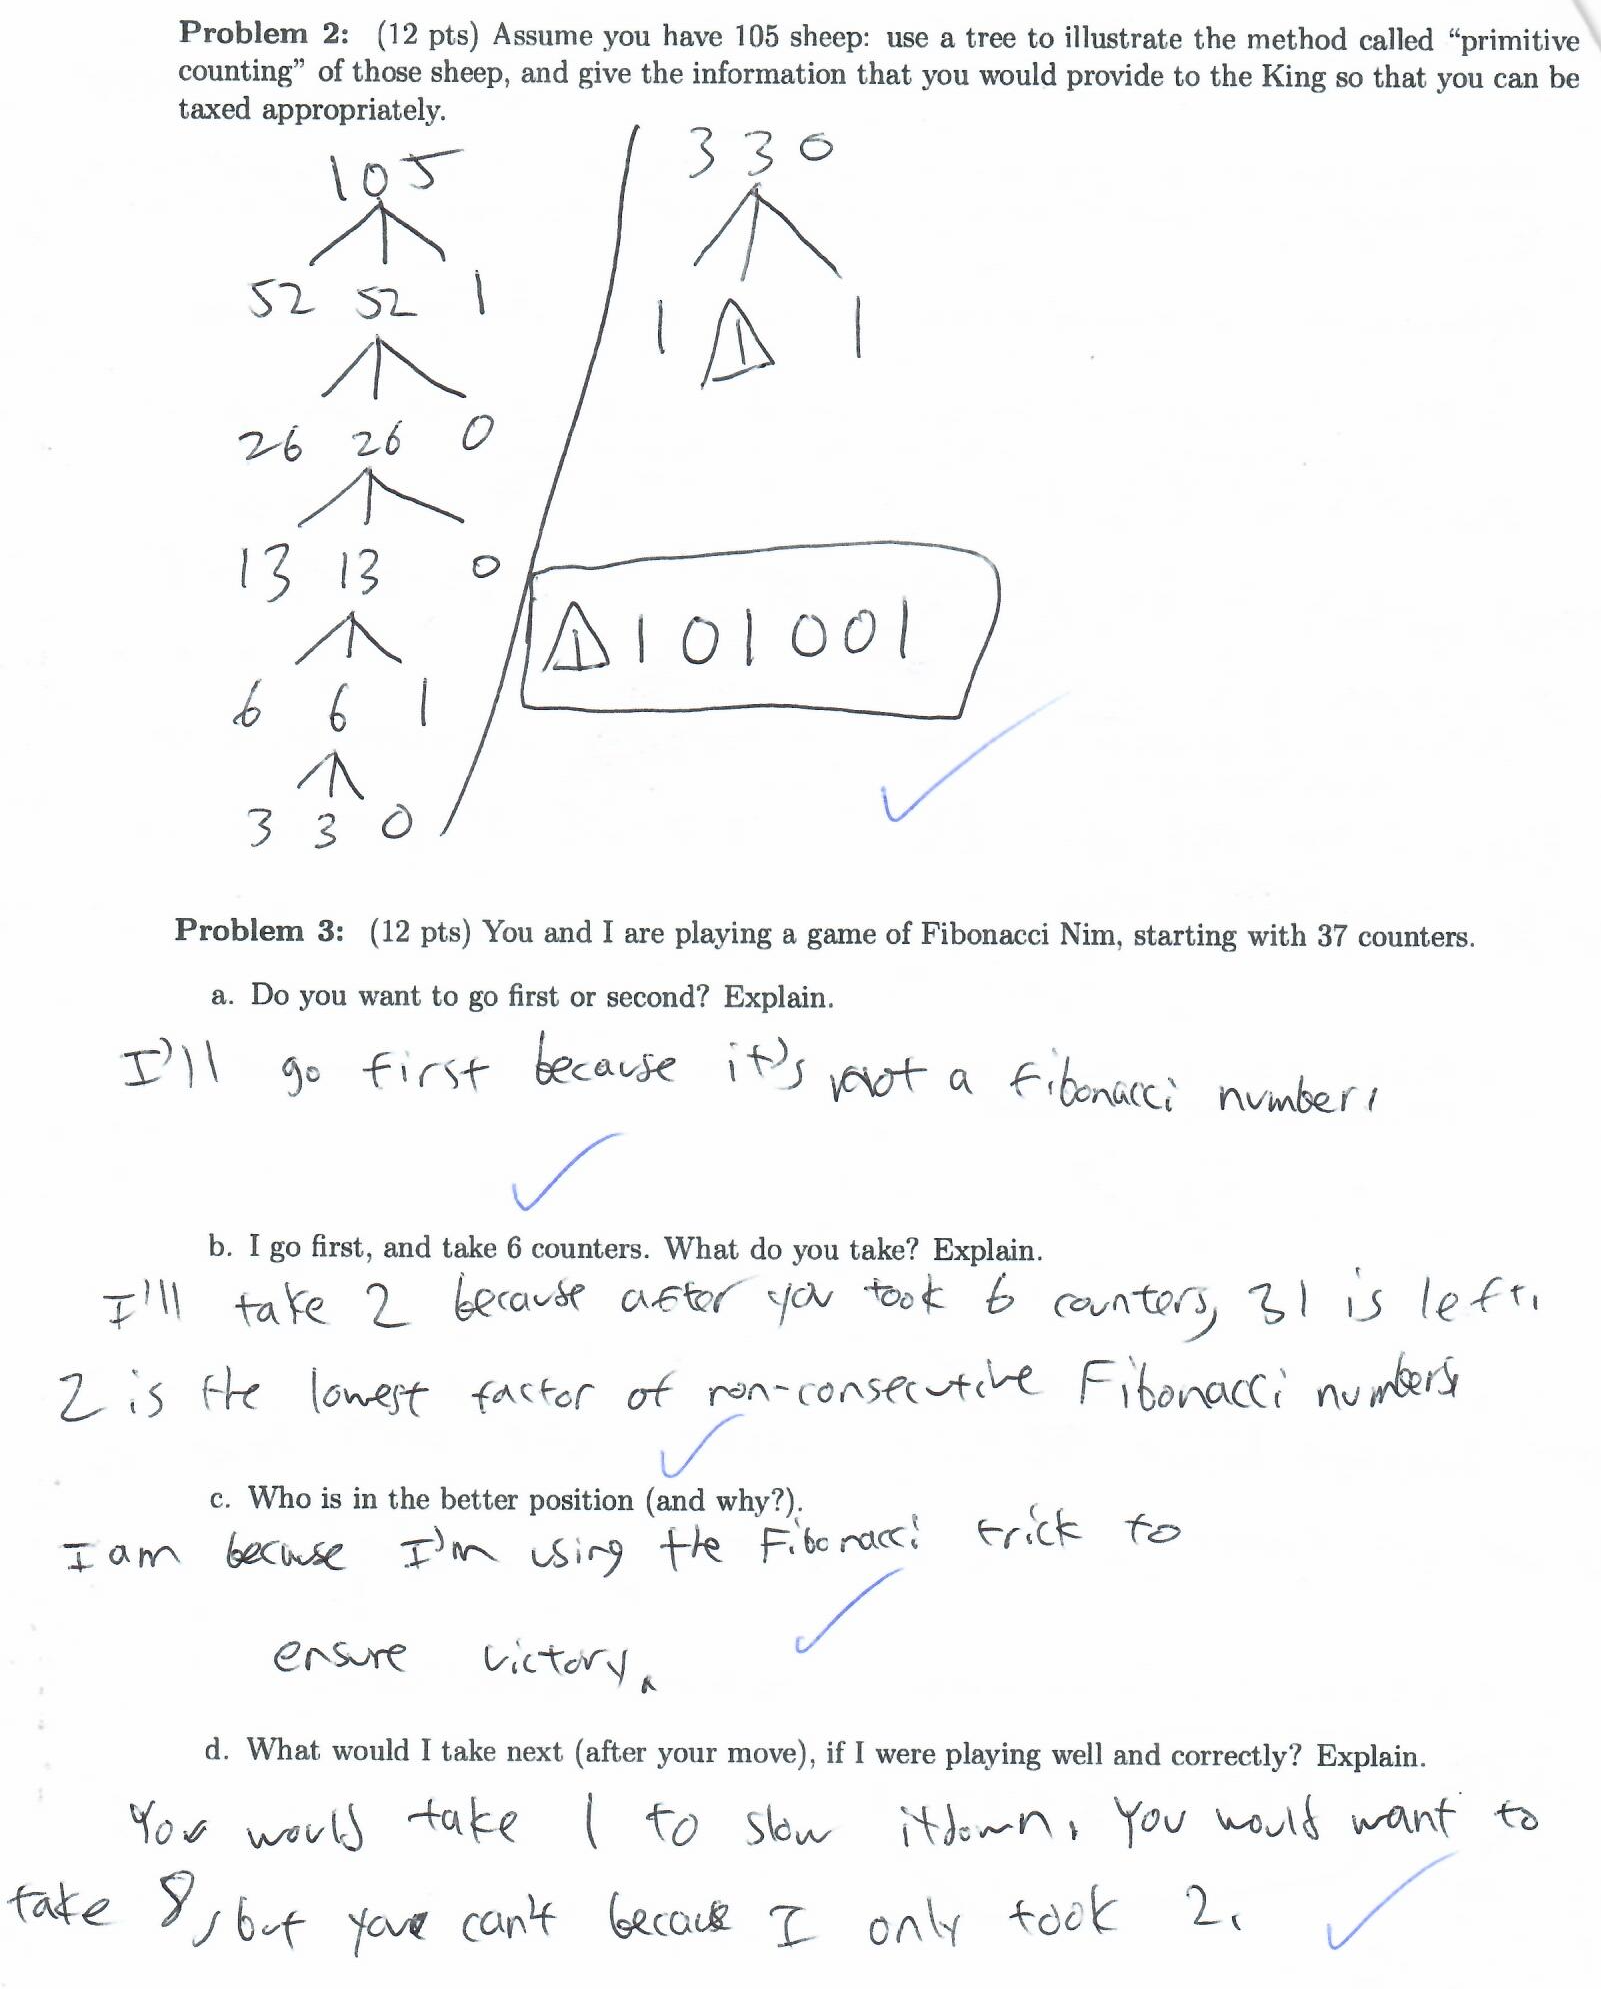 Problem 2: (12 pts) Assume you have 105 sheep: use a tree to illustrate the method called “primitive
counting” of those sheep, and give the information that you would provide to the King so that you can be
taxed appropriately.
105
52 52 1
26 26 0
13 13 0
6 6 1
3 3 0
3 3 0
1 1 1
1 101001
Problem 3: (12 pts) You and I are playing a game of Fibonacci Nim, starting with 37 counters.
a. Do you want to go first or second? Explain.
I'll go first because it's not a Fibonacci number.
b. I go first, and take 6 counters. What do you take? Explain.
I'll take 2 because after you took 6 counters, 31 is left.
2 is the lowest factor of non-consecutive Fibonacci numbers
c. Who is in the better position (and why?).
I am because I'm using the Fibonacci trick to
ensure victory.
d. What would I take next (after your move), if I were playing well and correctly? Explain.
You would take 1 to slow it down. You would want to
take 8, but you can't because I only took 2.